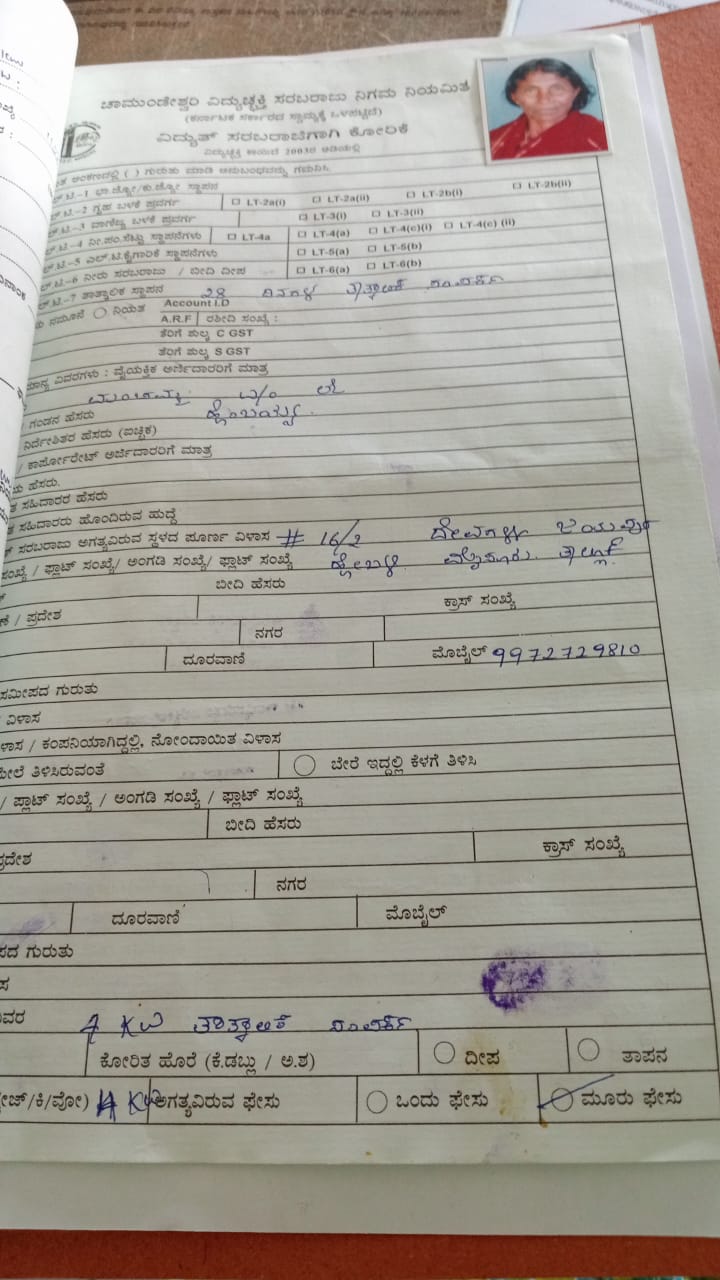 ಚಾಮುಂಡೇಶ್ವರಿ ವಿದ್ಯುಚ್ಛಕ್ತಿ ಸರಬರಾಜು ನಿಗಮ ನಿಯಮಿತ
(ಕರ್ನಾಟಕ ಸರ್ಕಾರದ ಸ್ವಾಮ್ಯಕ್ಕೆ ಒಳಪಟ್ಟಿದೆ)
ವಿದ್ಯುತ್ ಸರಬರಾಜಿಗಾಗಿ ಕೋರಿಕೆ
ವಿದ್ಯುಚ್ಛಕ್ತಿ ಕಾಯಿದೆ 2003ರ ಅಡಿಯಲ್ಲಿ
ಅಂಕಣದಲ್ಲಿ ( ) ಗುರುತು ಮಾಡಿ ಅನುಬಂಧವನ್ನು ಗಮನಿಸಿ
ಸ್ಥಾಪನ
–2 ಗೃಹ ಬಳಕೆ ಪ್ರವರ್ಗ LT-2a(i) LT-2a(ii) LT-2b(i) LT-2b(ii)
–3 ವಾಣಿಜ್ಯ ಬಳಕೆ ಪ್ರವರ್ಗ LT-3(i) LT-3(ii)
–4 ನೀ.ಪಂ.ಸೆಟ್ಟು ಸ್ಥಾಪನೆಗಳು LT-4a LT-4(a) LT-4(c)(i) LT-4(c) (ii)
–5 ಎಲ್.ಟಿ.ಕೈಗಾರಿಕೆ ಸ್ಥಾಪನೆಗಳು LT-5(a) LT-5(b)
–6 ನೀರು ಸರಬರಾಜು / ಬೀದಿ ದೀಪ LT-6(a) LT-6(b)
–7 ತಾತ್ಕಾಲಿಕ ಸ್ಥಾಪನ 28 ದಿನಗಳ ತಾತ್ಕಾಲಿಕ ಸಂಪರ್ಕ
ನಮೂನೆ ನಿಯತ Account I.D
A.R.F ರಶೀದಿ ಸಂಖ್ಯೆ :
ತೆರಿಗೆ ಶುಲ್ಕ C GST
ತೆರಿಗೆ ಶುಲ್ಕ S GST
ವಿವರಗಳು : ವೈಯಕ್ತಿಕ ಅರ್ಜಿದಾರರಿಗೆ ಮಾತ್ರ
W/O ಲೇ
ಗಂಡನ ಹೆಸರು
ನಿರ್ದೇಶಿತರ ಹೆಸರು (ಐಚ್ಛಿಕ)
/ ಕಾರ್ಪೋರೇಟ್ ಅರ್ಜಿದಾರರಿಗೆ ಮಾತ್ರ
ಹೆಸರು.
ಸಹಿದಾರರ ಹೆಸರು
ಸಹಿದಾರರು ಹೊಂದಿರುವ ಹುದ್ದೆ
ಸರಬರಾಜು ಅಗತ್ಯವಿರುವ ಸ್ಥಳದ ಪೂರ್ಣ ವಿಳಾಸ # 16/2 ಜಯಪುರ
ಸಂಖ್ಯೆ / ಫ್ಲಾಟ್ ಸಂಖ್ಯೆ/ ಅಂಗಡಿ ಸಂಖ್ಯೆ/ ಫ್ಲಾಟ್ ಸಂಖ್ಯೆ ಹೋಬಳಿ ಮೈಸೂರು ತಾಲ್ಲೂಕ್
ಬೀದಿ ಹೆಸರು
/ ಪ್ರದೇಶ ಕ್ರಾಸ್ ಸಂಖ್ಯೆ
ನಗರ
ದೂರವಾಣಿ ಮೊಬೈಲ್ 9972729810
ಸಮೀಪದ ಗುರುತು
ವಿಳಾಸ
/ ಕಂಪನಿಯಾಗಿದ್ದಲ್ಲಿ, ನೋಂದಾಯಿತ ವಿಳಾಸ
ತಿಳಿಸಿರುವಂತೆ ಬೇರೆ ಇದ್ದಲ್ಲಿ ಕೆಳಗೆ ತಿಳಿಸಿ
/ ಪ್ಲಾಟ್ ಸಂಖ್ಯೆ / ಅಂಗಡಿ ಸಂಖ್ಯೆ / ಫ್ಲಾಟ್ ಸಂಖ್ಯೆ
ಬೀದಿ ಹೆಸರು
ಪ್ರದೇಶ ಕ್ರಾಸ್ ಸಂಖ್ಯೆ
ನಗರ
ದೂರವಾಣಿ ಮೊಬೈಲ್
ಗುರುತು
KW ತಾತ್ಕಾಲಿಕ ಸಂಪರ್ಕ
ಕೋರಿತ ಹೊರೆ (ಕೆ.ಡಬ್ಲು / ಅ.ಶ) ದೀಪ ತಾಪನ
4 KW ಅಗತ್ಯವಿರುವ ಫೇಸು ಒಂದು ಫೇಸು ಮೂರು ಫೇಸು